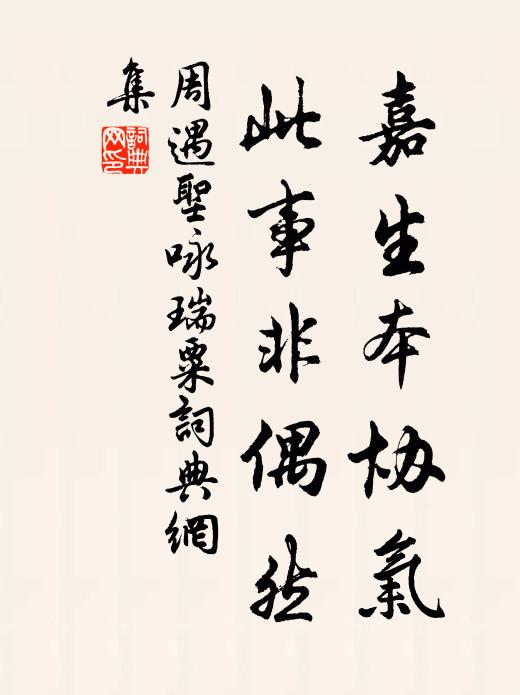 嘉生本协氣
此事非偶然
周遇聖咏瑞粟詞典網
集
詞典網印